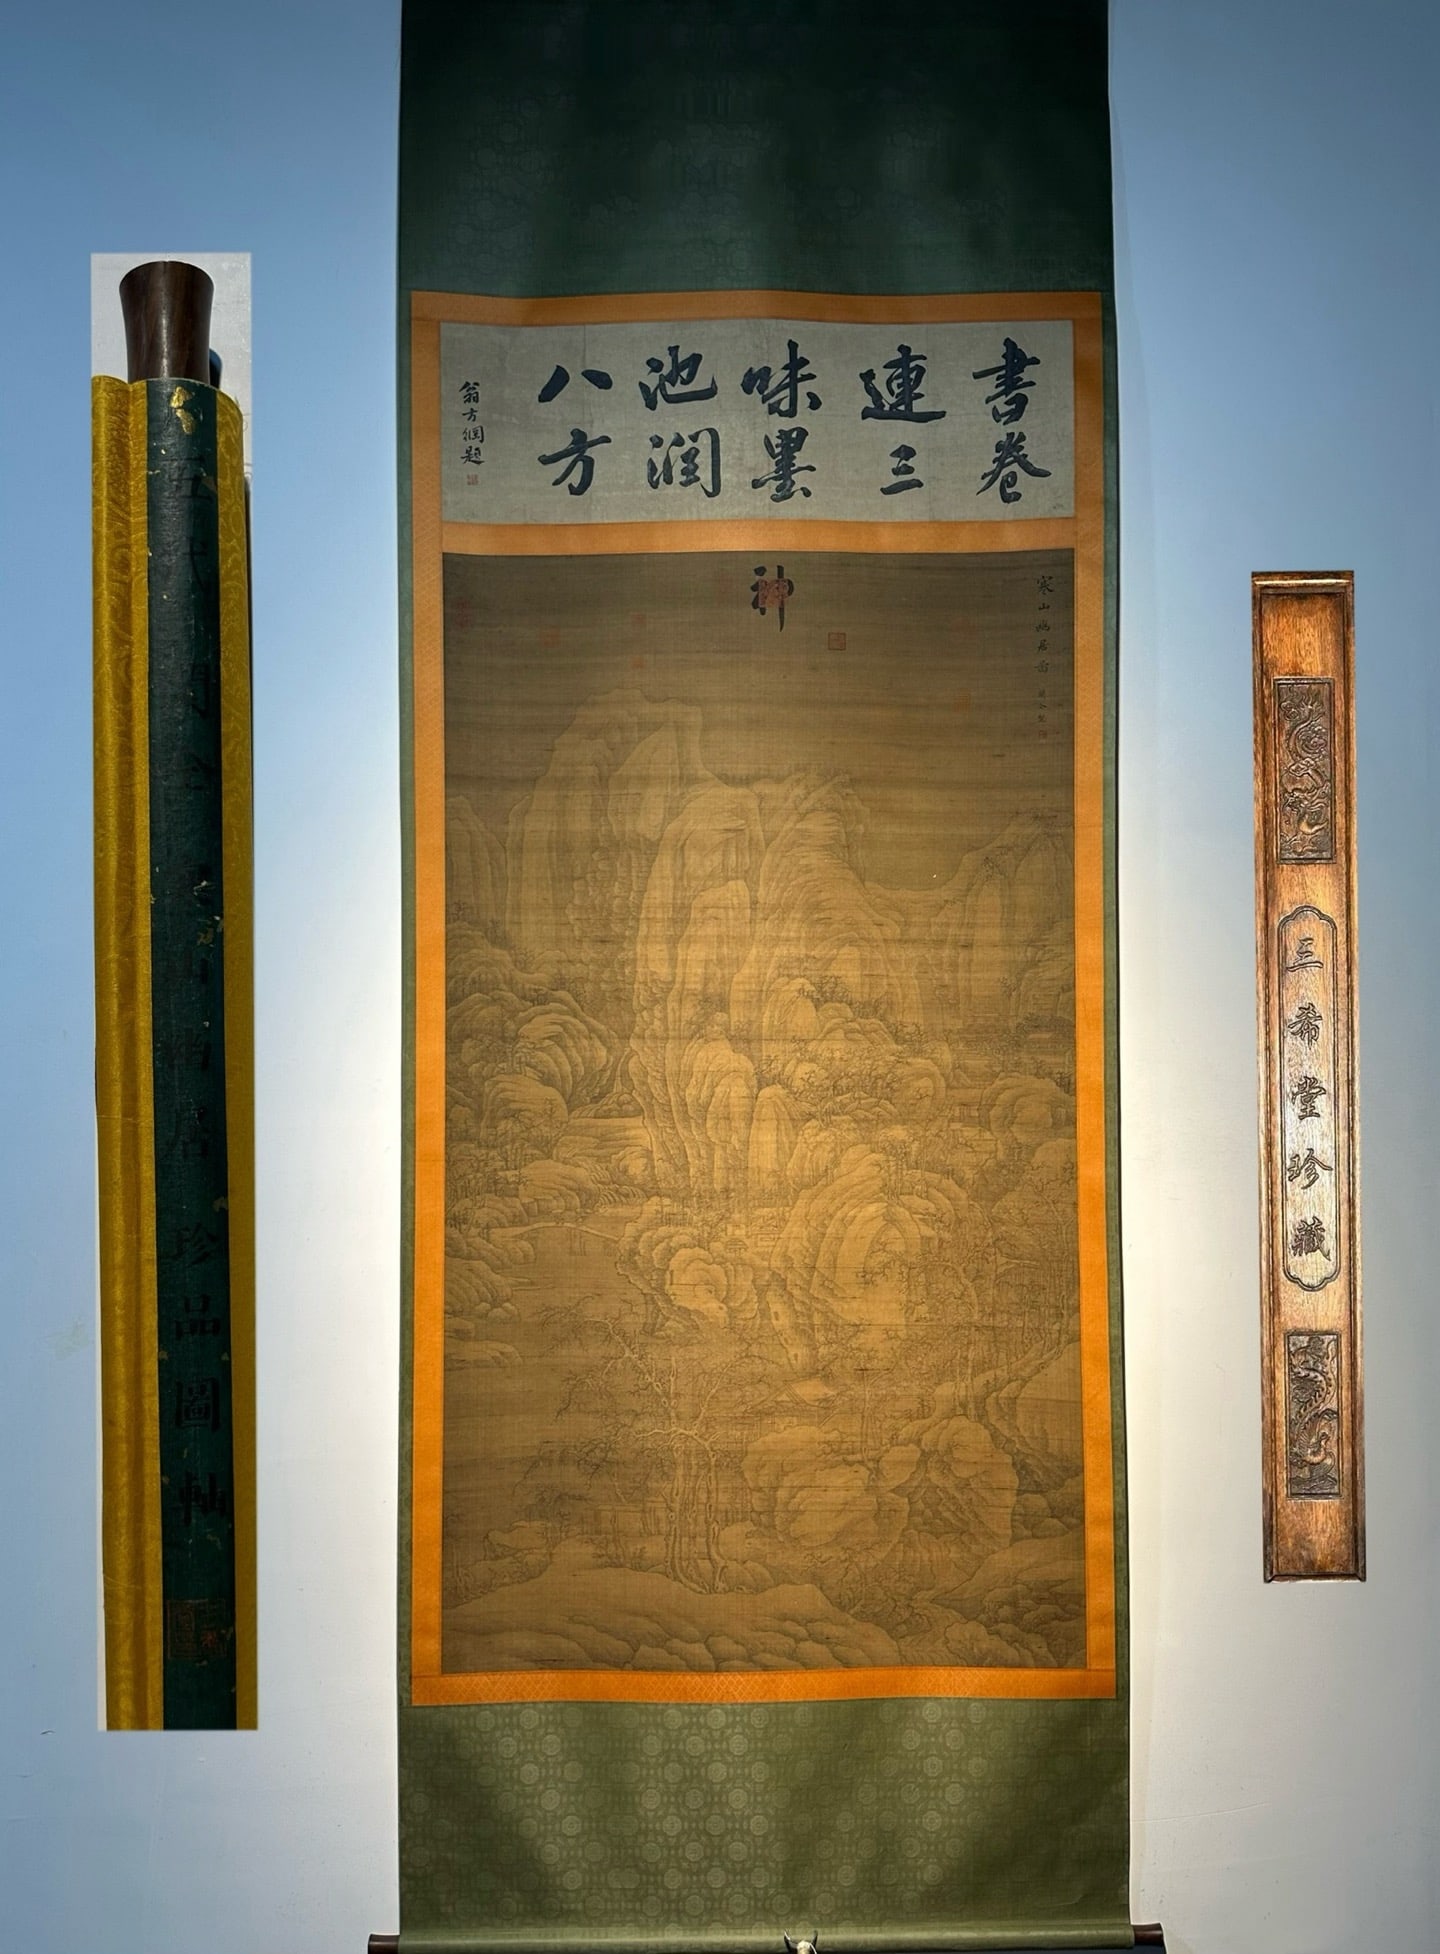 書卷
連三
味墨
池潤
八方
翁方綱題
神
寒山幽居啚
居珍品圖軸
三希堂珍藏